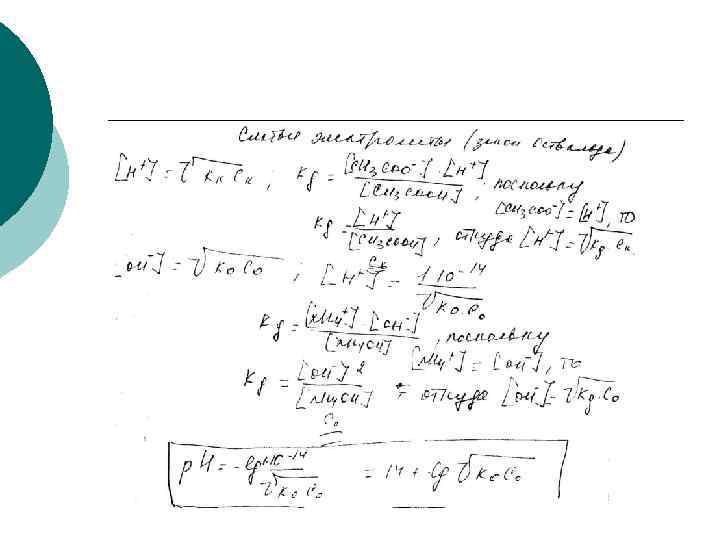 Слабые электролиты (закон Оствальда)
[H⁺] = √KкCк ; Kg = [CH₃COO⁻]·[H⁺] / [CH₃COOH] ; поскольку
[CH₃COO⁻] = [H⁺], то
Kg = [H⁺] / [CH₃COOH] , откуда [H⁺] = √Kg Cк
Cк
[OH⁻] = √KoCo ; [H⁺] = 1 10⁻¹⁴ / √Ko·Co
Kg = [NH₄⁺] [OH⁻] / [NH₄OH] , поскольку
[NH₄⁺] = [OH⁻], то
Kg = [OH⁻]² / [NH₄OH] откуда [OH⁻] = √Kg·Co
Co
pH = -lg 1·10⁻¹⁴ / √Ko Co = 14 + lg √KoCo